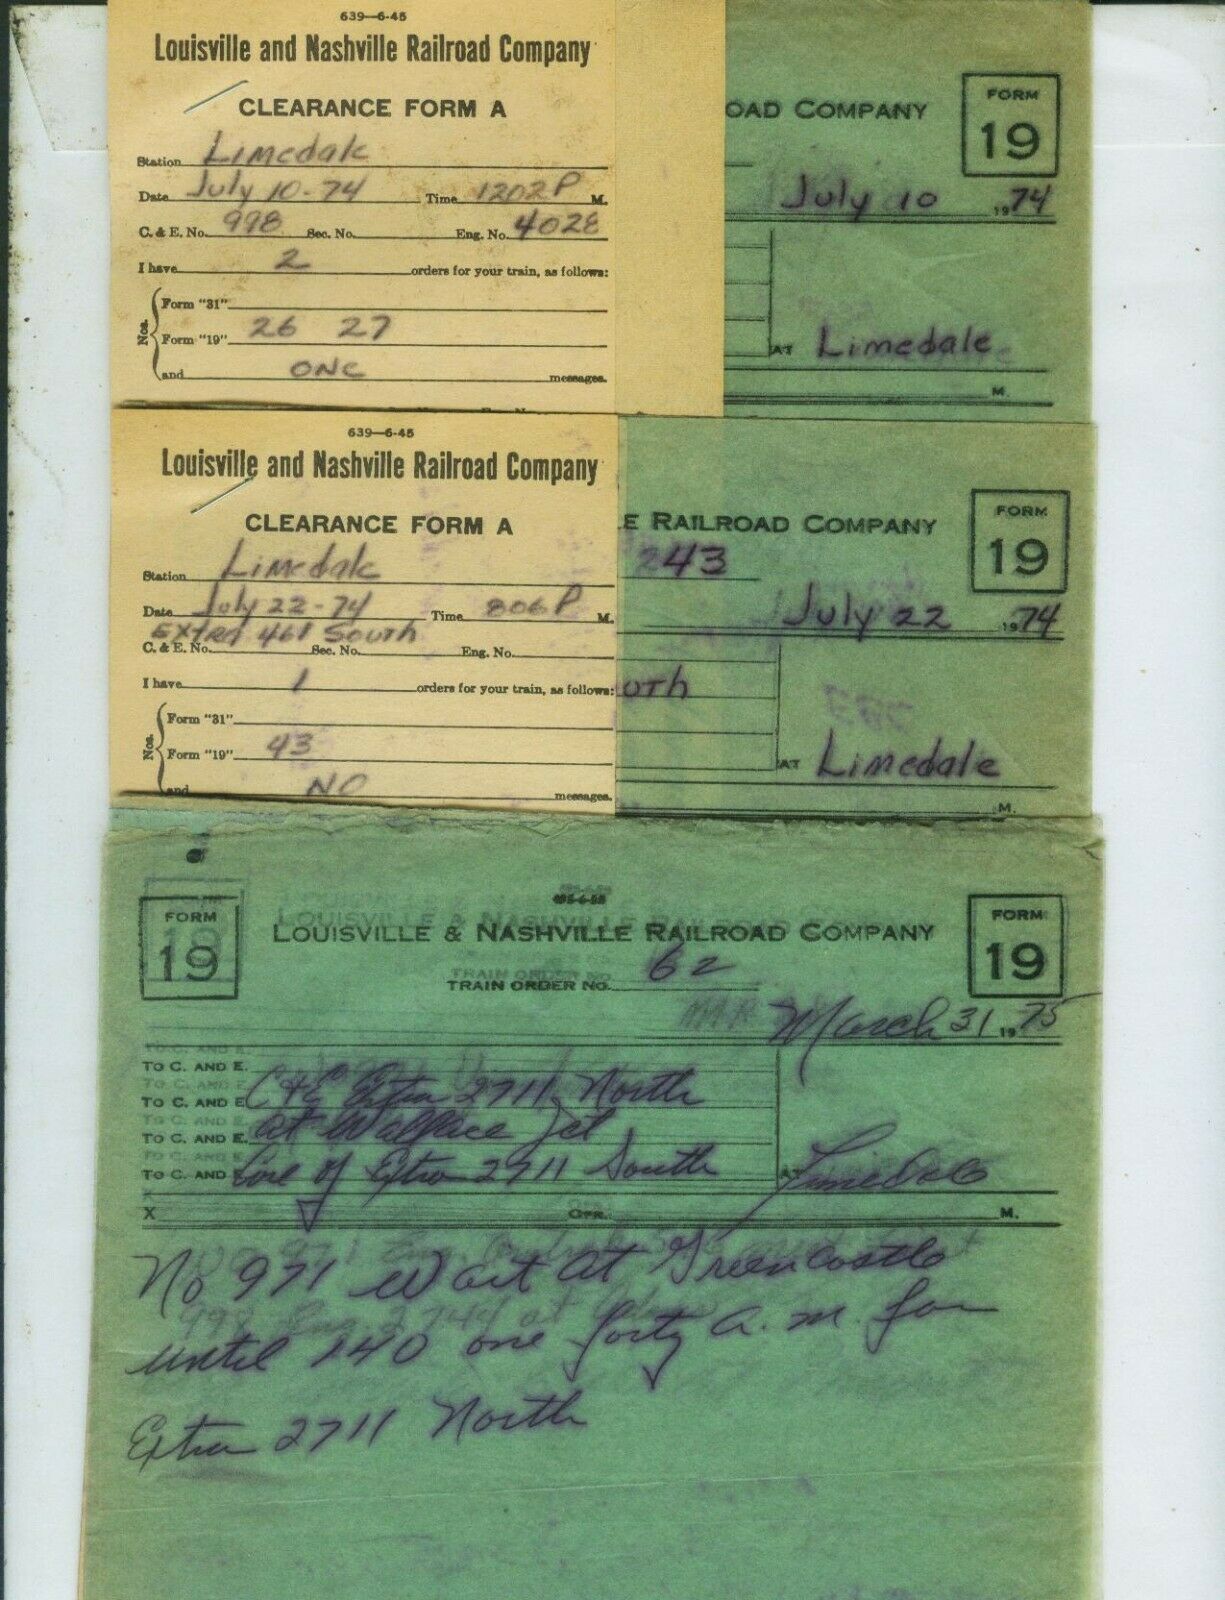 639—6-45
Louisville and Nashville Railroad Company
CLEARANCE FORM A
Station Limedale
Date July 10-74 Time 1202 P M.
C. & E. No. 998 Sec. No. Eng. No. 4028
I have 2 orders for your train, as follows:
Nos. Form "31"
Form "19" 26 27
and ONE messages.
OAD COMPANY
FORM 19
July 10 1974
AT Limedale
M.
639—6-45
Louisville and Nashville Railroad Company
CLEARANCE FORM A
Station Limedale
Date July 22-74 Time 806 P M.
EXTRA 461 South
C. & E. No. Sec. No. Eng. No.
I have 1 orders for your train, as follows:
Nos. Form "31"
Form "19" 43
and NO messages.
E RAILROAD COMPANY
FORM 19
243
July 22 1974
uth
AT Limedale
M.
FORM 19
LOUISVILLE & NASHVILLE RAILROAD COMPANY
FORM 19
TRAIN ORDER NO. 62
March 31 1975
TO C. AND E.
TO C. AND E. C&E Extra 2711 North
TO C. AND E. at Wallace Jct
TO C. AND E. Care of Extra 2711 South AT Limedale
X OPR. M.
No 971 Wait at Greencastle
until 140 one forty a.m. for
Extra 2711 North